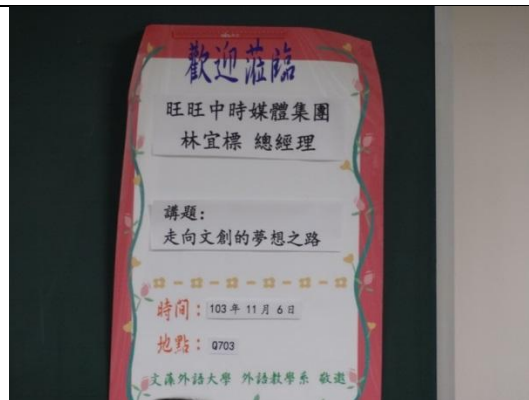 歡迎蒞臨
旺旺中時媒體集團
林宜標 總經理
講題:
走向文創的夢想之路
時間: 103 年 11 月 6 日
地點: Q703
文藻外語大學 外語教學系 敬邀